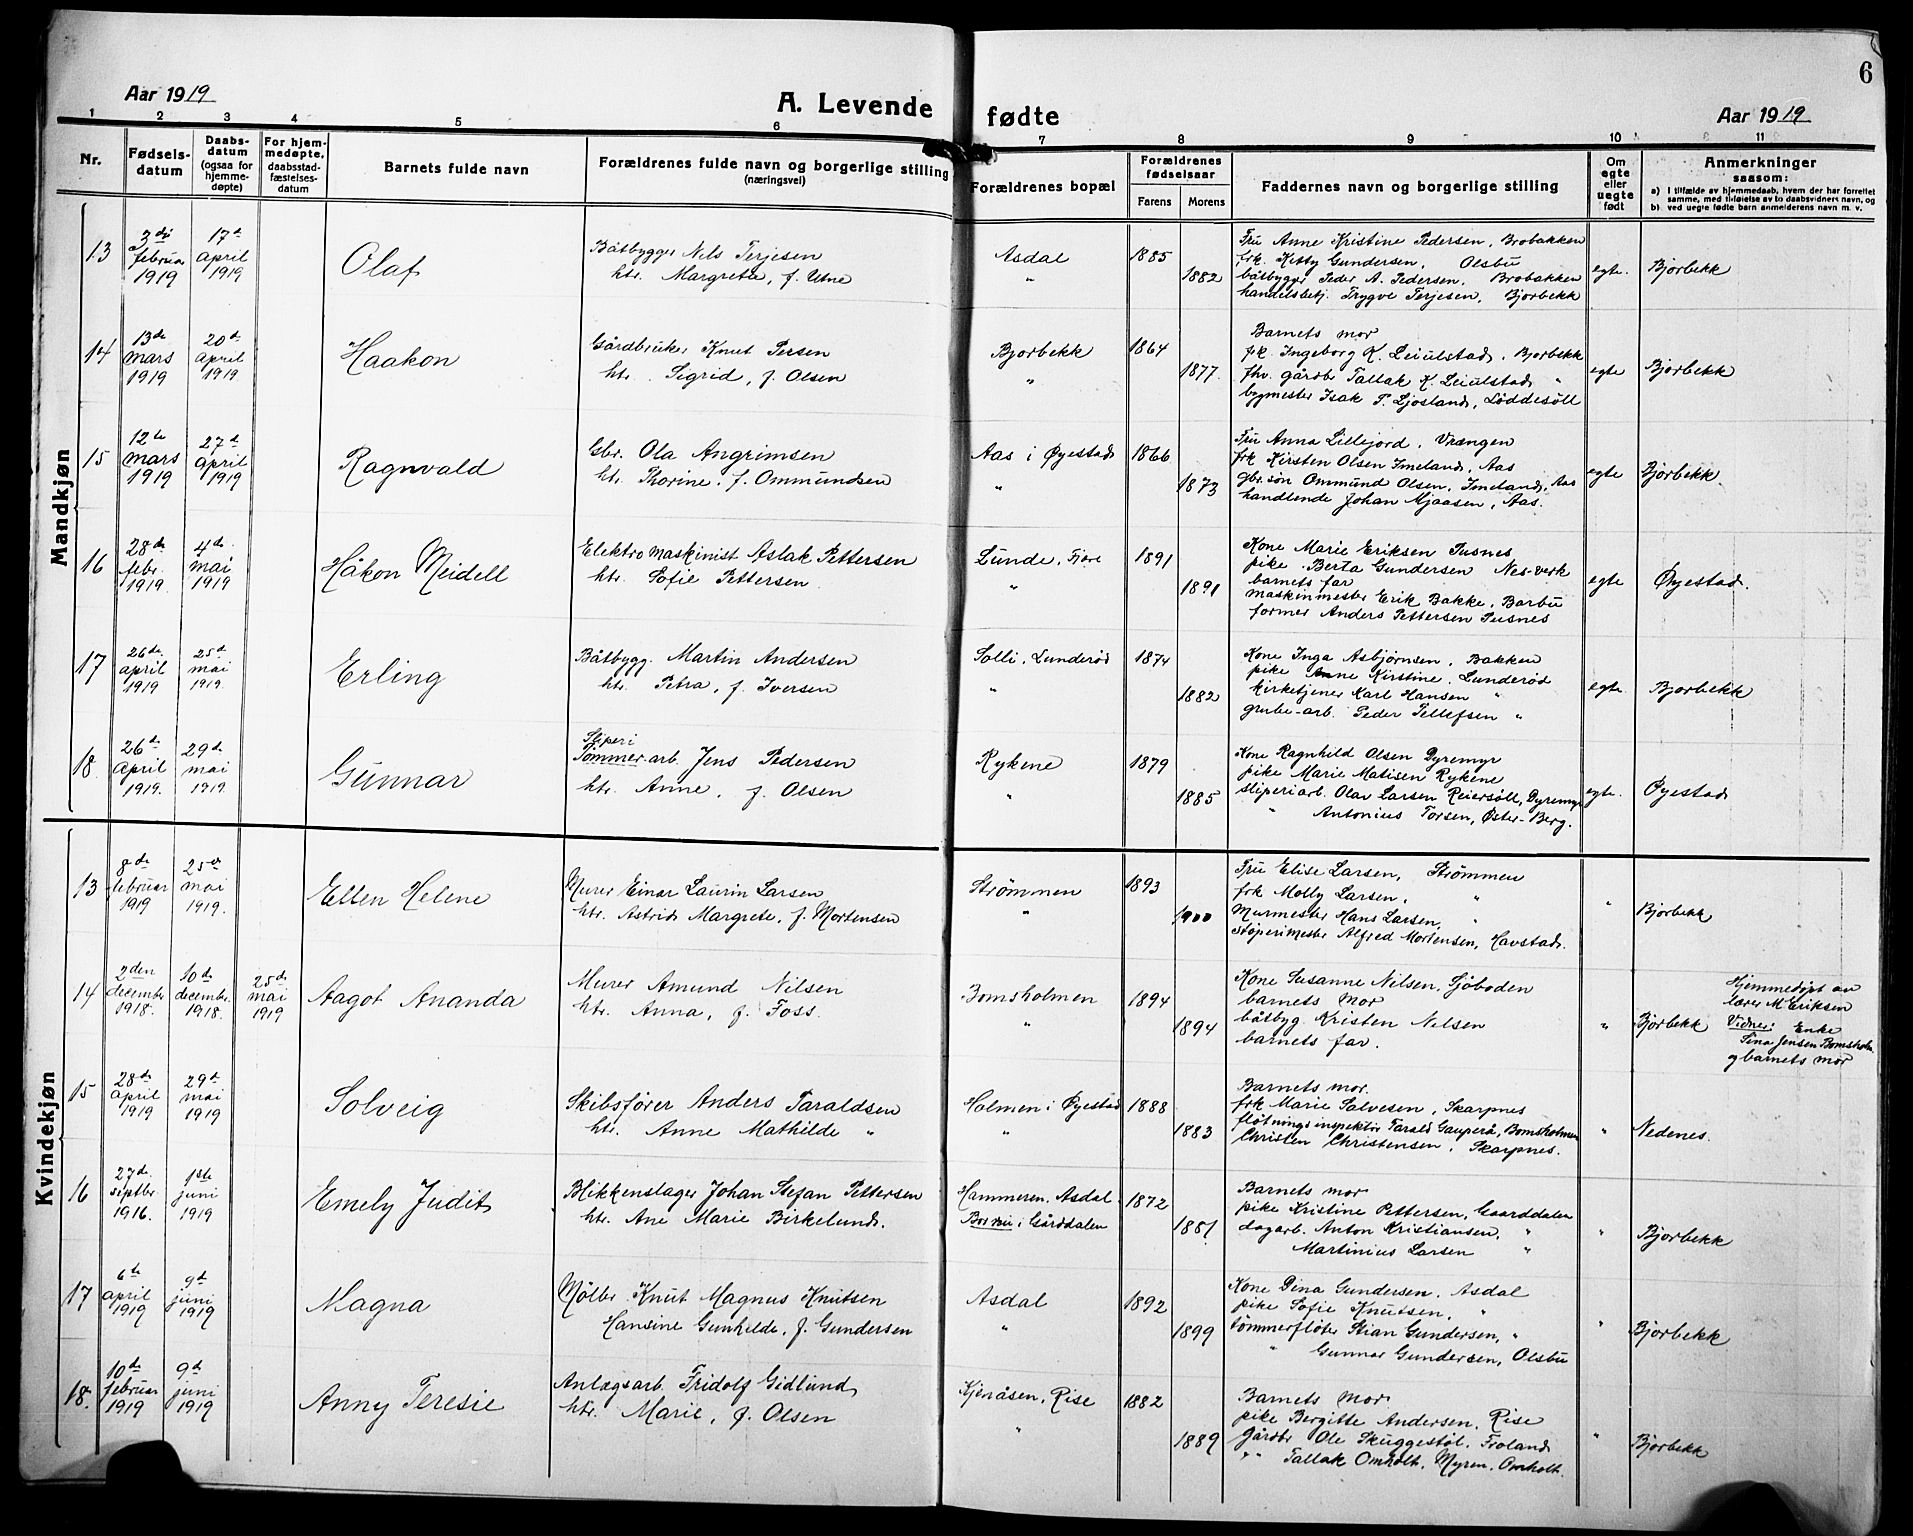 6
Aar 1919
A. Levende fødte
Aar 1919
1 2 3 4 5 6 7 8 9 10 11
Nr.
Fødsels-
datum
Daabs-
datum
(ogsaa for
hjemme-
døpte)
For hjem-
medøpte,
daabsstad-
fæstelses-
datum
Barnets fulde navn
Forældrenes fulde navn og borgerlige stilling
(næringsvei)
Forældrenes bopæl
Forældrenes
fødselsaar
Farens
Morens
Faddernes navn og borgerlige stilling
Om
egte
eller
uegte
født
Anmerkninger
saasom:
a) I tilfælde av hjemmedaab, hvem der har forrettet
samme, med tilføielse av to daabsvidners navn, og
b) ved uegte fødte barn anmelderens navn m. v.
Mandkjøn
13
3di
februar
1919
17d
april
1919
Olaf
Båtbygger Nils Terjesen
htr. Margrete, f. Utne
Asdal
"
1885
1882
Fru Anne Kristine Pedersen, Brobakken
frk. Kitty Gundersen, Olsbu
båtbygger Peder A. Pedersen, Brobakken
handelsbetj. Trygve Terjesen, Bjorbekk
egte.
Bjorbekk
14
13de
mars
1919
20d
april
1919
Haakon
Gårdbruker Knut Persen
htr. Sigrid, f. Olsen
Bjorbekk
"
1864
1877.
Barnets mor
frk. Ingeborg K. Leiulstad, Bjorbekk
fhv. gårdbr Tallak K. Leiulstad "
bygmester Isak T. Ljosland, Løddesøll
egte
Bjorbekk
15
12te
mars
1919
27d
april
1919
Ragnvald
Gbr. Ola Angrimsen
ht. Thorine, f. Ommundsen
Aas i Øyestad
"
1866
1873
Fru Anna Lillejord, Vrængen
frk Kirsten Olsen Imeland, Aas
gbr.søn Ommund Olsen, Imeland, Aas
handlende Johan Mjaasen, Aas.
egte
Bjorbekk
16
28de
febr.
1919.
4de
mai
1919
Håkon Meidell
Elektromaskinist Aslak Pettersen
htr. Sofie Pettersen
Lunde, Fiære
"
1891
1891
Kone Marie Eriksen Pusnes
pike Berta Gundersen Nes-verk
barnets far
maskinmester Erik Bakke, Barbu
former Anders Pettersen Pusnes
egte
Øyestad.
17
26de
april
1919
25d
mai
1919.
Erling
Båtbygg. Martin Andersen
htr. Petra, f. Iversen
Solli, Lunderød
"
1874
1882
Kone Inga Asbjørnsen, Bakken
pike Anne Kirstine, Lunderød
kirketjener Karl Hansen "
grube-arb. Peder Pellefsen "
egte.
Bjorbekk
18
26de
april
1919.
29de
mai
1919.
Gunnar
Sliperi
Tømmer-arb. Jens Pedersen
htr. Anne, f. Olsen
Rykene
"
1879
1885
Kone Ragnhild Olsen Dyremyr
pike Marie Matisen Rykene
sliperiarb. Olav Larsen Reiersøll, Dyremyr
" Antonius Torsen, Øster-Berg.
egte.
Øyestad
Kvindekjøn
13
8de
februar
1919
25de
mai
1919.
Ellen Helene
Murer Einar Laurin Larsen
htr. Astrid Margrete, f. Mortensen
Strømmen
"
1893
1900
Fru Elise Larsen, Strømmen
frk Molly Larsen, "
Murmester Hans Larsen, "
Støperimester Alfred Mortensen, Havstad.
"
Bjorbekk
14
2den
december
1918.
10de
december
1918.
25de
mai
1919
Aagot Ananda
Murer Amund Nilsen
htr. Anna, f. Foss.
Bomsholmen
"
1894
1894
Kone Susanne Nilsen, Sjøboden
barnets mor
båtbyg. Kristen Nilsen
barnets far.
"
Bjorbekk
Hjemmedøpt av
lærer M Eriksen
Vidner: Enke
Tina Jensen Bomsholm.
og barnets mor
15
28de
april
1919
29d
mai
1919
Solveig
Skibsfører Anders Taraldsen
htr. Anne Mathilde "
Holmen i Øyestad
"
1888
1883
Barnets mor.
frk Marie Salvesen, Skarpnes
fløtningsinspektør Tarald Gauperå, Bomsholmen
Christen Christensen, Skarpnes.
"
Nedenes.
16
27de.
septbr
1916.
1ste
juni
1919
Emely Judit
Blikkenslager Johan Stefan Pettersen
htr. Ane Marie Birkelund.
Hammeren, Asdal.
Bor nu i Gårddalen
1872
1881
Barnets mor
pike Kristine Pettersen, Gaarddalen
dagarb. Anton Kristiansen, "
Martinius Larsen "
"
Bjorbekk
17
6te
april
1919
9d
juni
1919
Magna
Mølbr. Knut Magnus Knutsen
Hansine Gunhilde, f. Gundersen
Asdal
"
1892
1899
Kone Dina Gundersen, Asdal
pike Sofie Knutsen, "
tømmerfløter Stian Gundersen, "
" Gunnar Gundersen, Olsbu
"
Bjorbekk
18.
10de
februar
1919
9d
juni
1919
Anny Teresie
Anlægsarb. Fridolf Gidlund
htr. Marie, f. Olsen
Kjenåsen, Rise
"
1882
1889
Barnets mor
pike Bergitte Andersen, Rise
gårdbr Ole Skuggestøl, Froland
" " Tallak Omholt, Myren, Omholt.
"
Bjorbekk